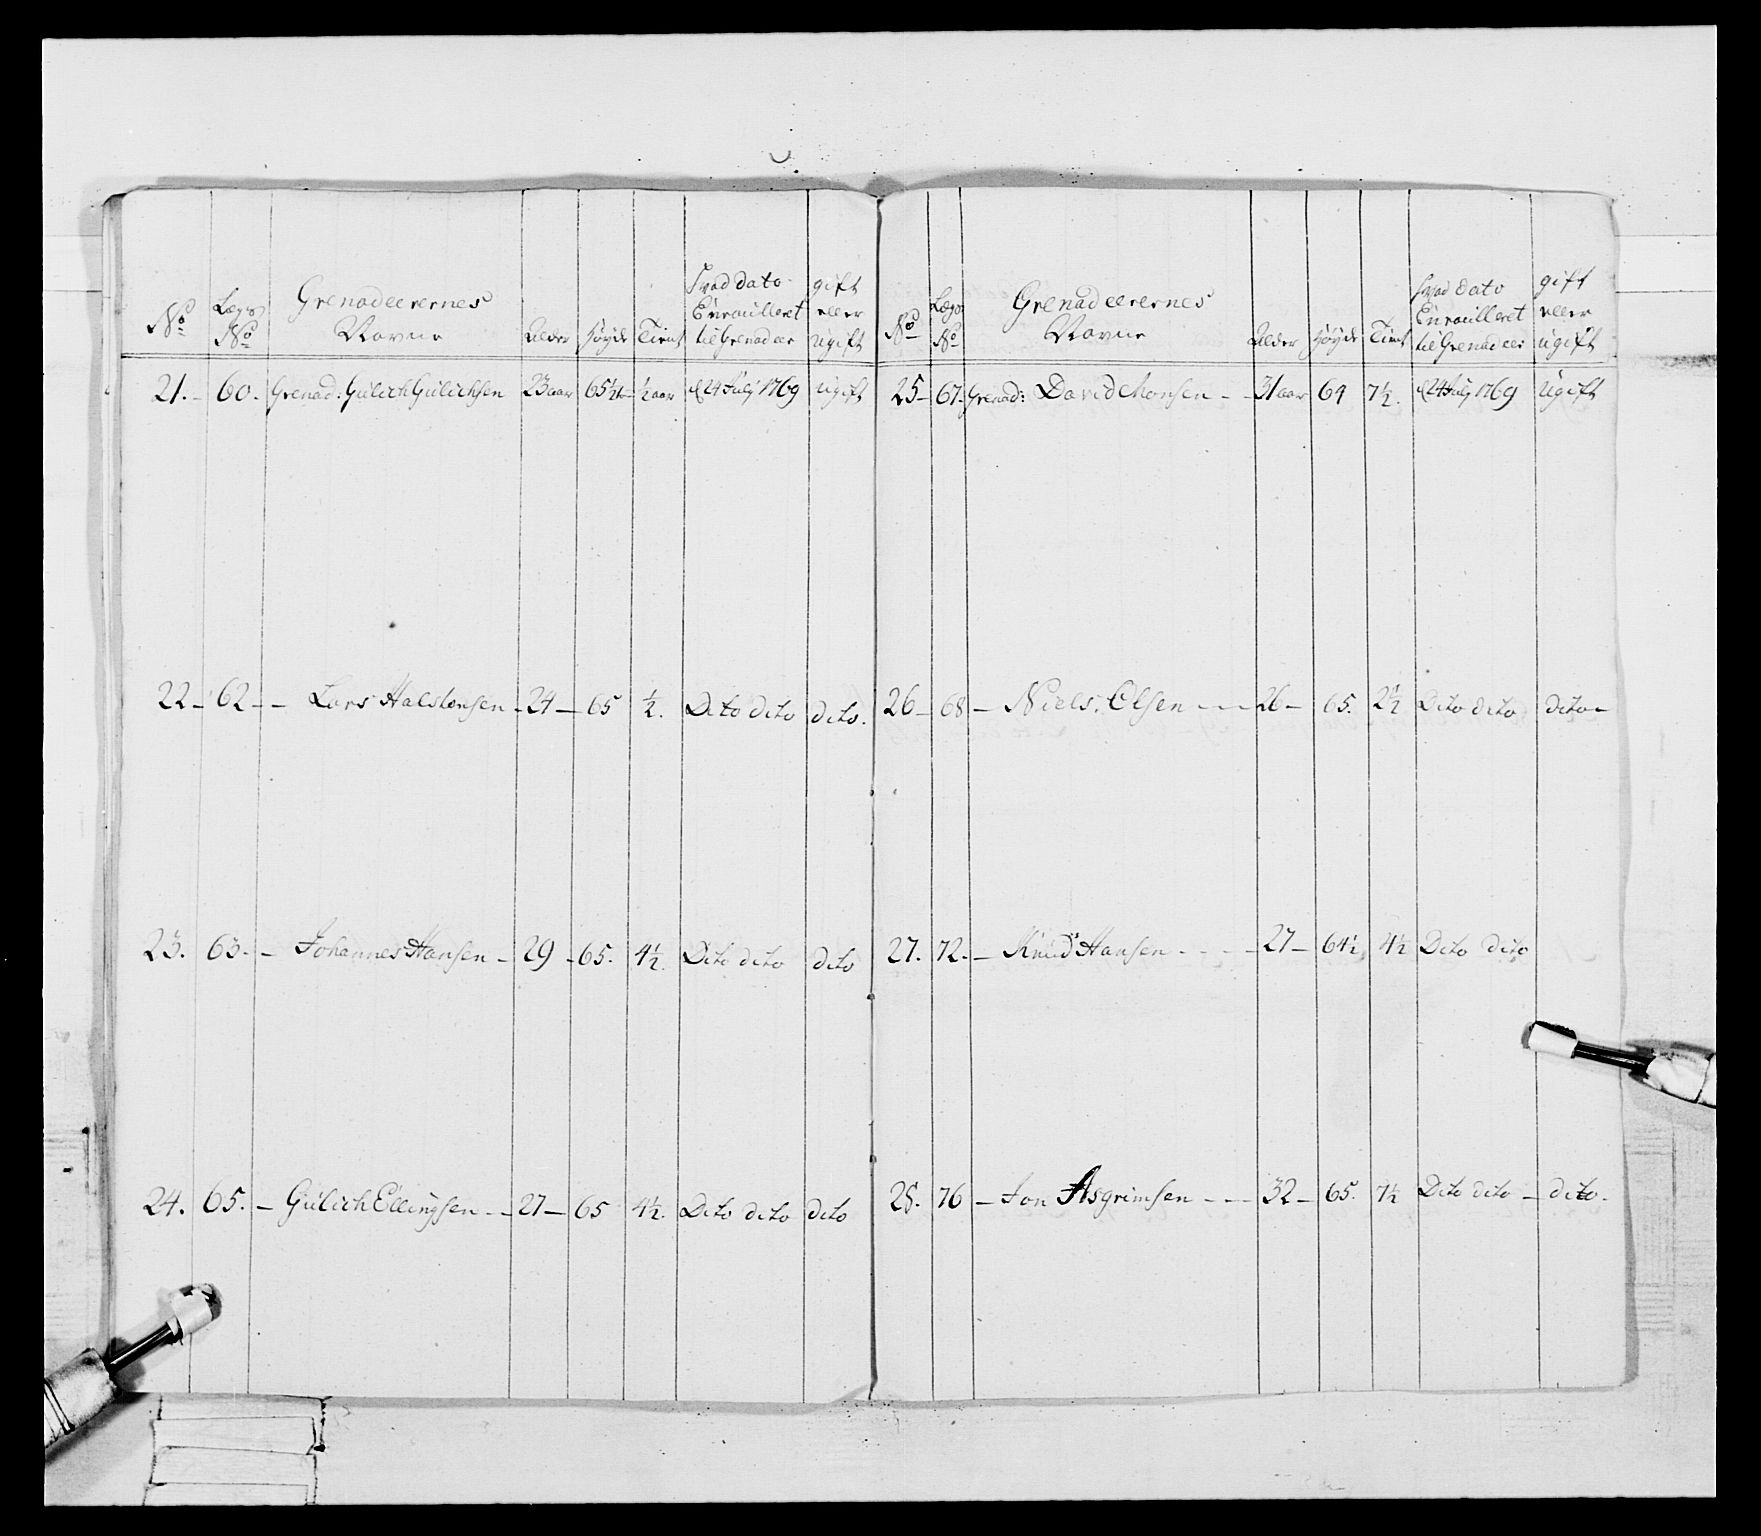 No Lægs No Grenadeerernes Navne Alder Høyde Tient Hvad dato Enroulleret til Grenadeer gift eller ugift
21. 60. Grenad: Gulich Gulichsen 23 aar 65½ ½ aar d 24 July 1769 Ugift
22 62 Lars Halstensen 24 65 ½. Dito dito dito.
23. 63. Johannes Hansen 29 65. 4½. Dito dito dito
24. 65. Gulich Ellingsen 27 65 4½. Dito dito dito
No Lægs No Grenadeerernes Navne Alder Høyde Tient Hvad dato Enroulleret til Grenadeer gift eller ugift
25 67. Grenad: David Monsen 31 aar 64 7½. d 24 July 1769 Ugift
26 68 Niels Olsen 26 65. 2½ Dito dito dito
27. 72. Knud Hansen 27 64½ 4½ Dito dito
28. 76 Jon Asgrimsen 32 65. 7½ Dito dito dito.